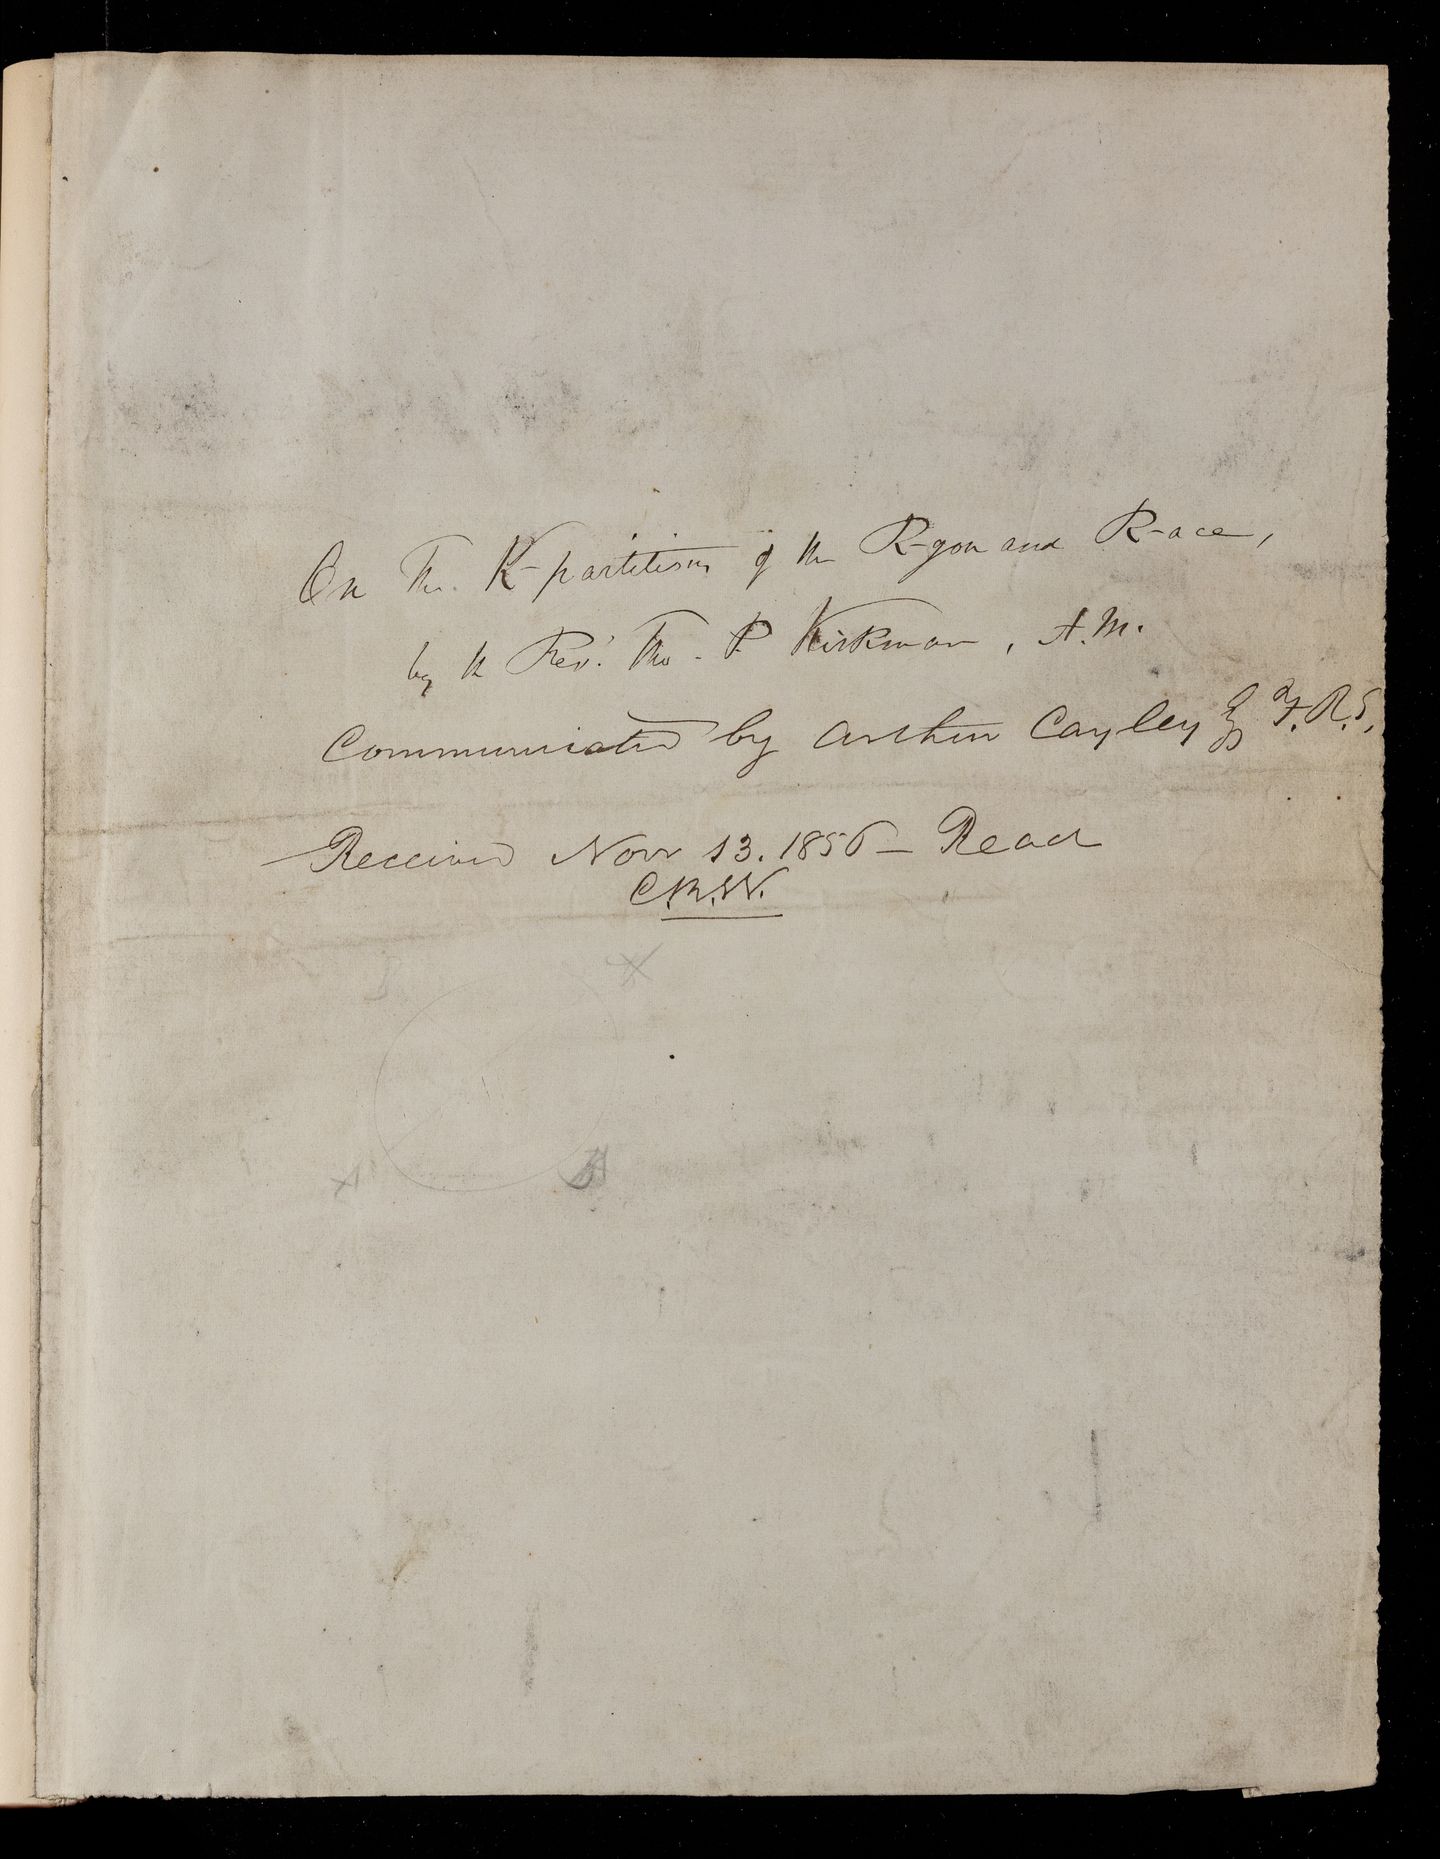 On the K-partitions of the R-gon and R-ace,
by the Rev.ᵈ Tho. P Kirkman, A.M.
Communicated by Arthur Cayley Esq F.R.S.
Received Novr 13. 1856 — Read
C.R.W.